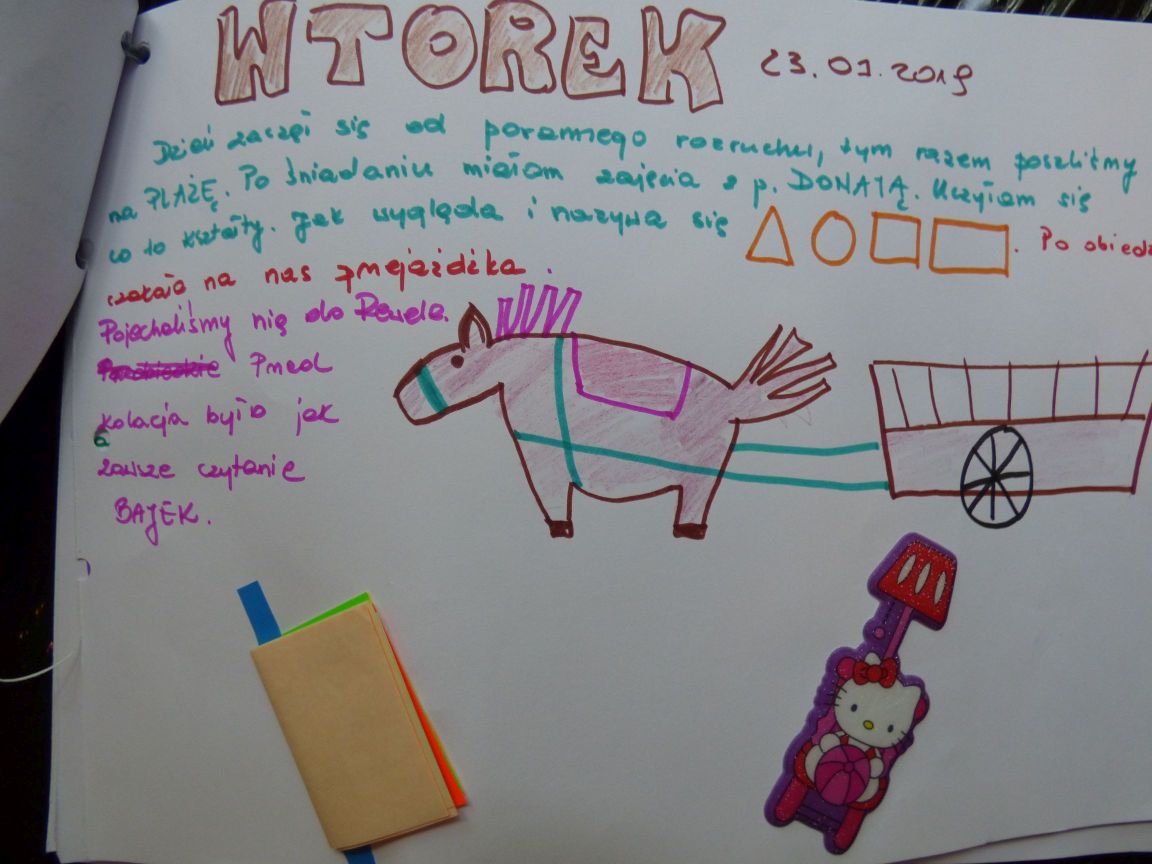 WTOREK 23.01.2019
Dzień zaczęł się od porannego rozruchu, tym razem poszliśmy
na PLAŻĘ. Po śniadaniu miałam zajęcia z p. DONATĄ. Uczyłam się
co to kształty. Jak wygląda i nazywa się . Po obiedz
czekała na nas przejażdżka.
Pojechaliśmy nią do Rewala.
Przed
kolacja było jak
zawsze czytanie
BAJEK.